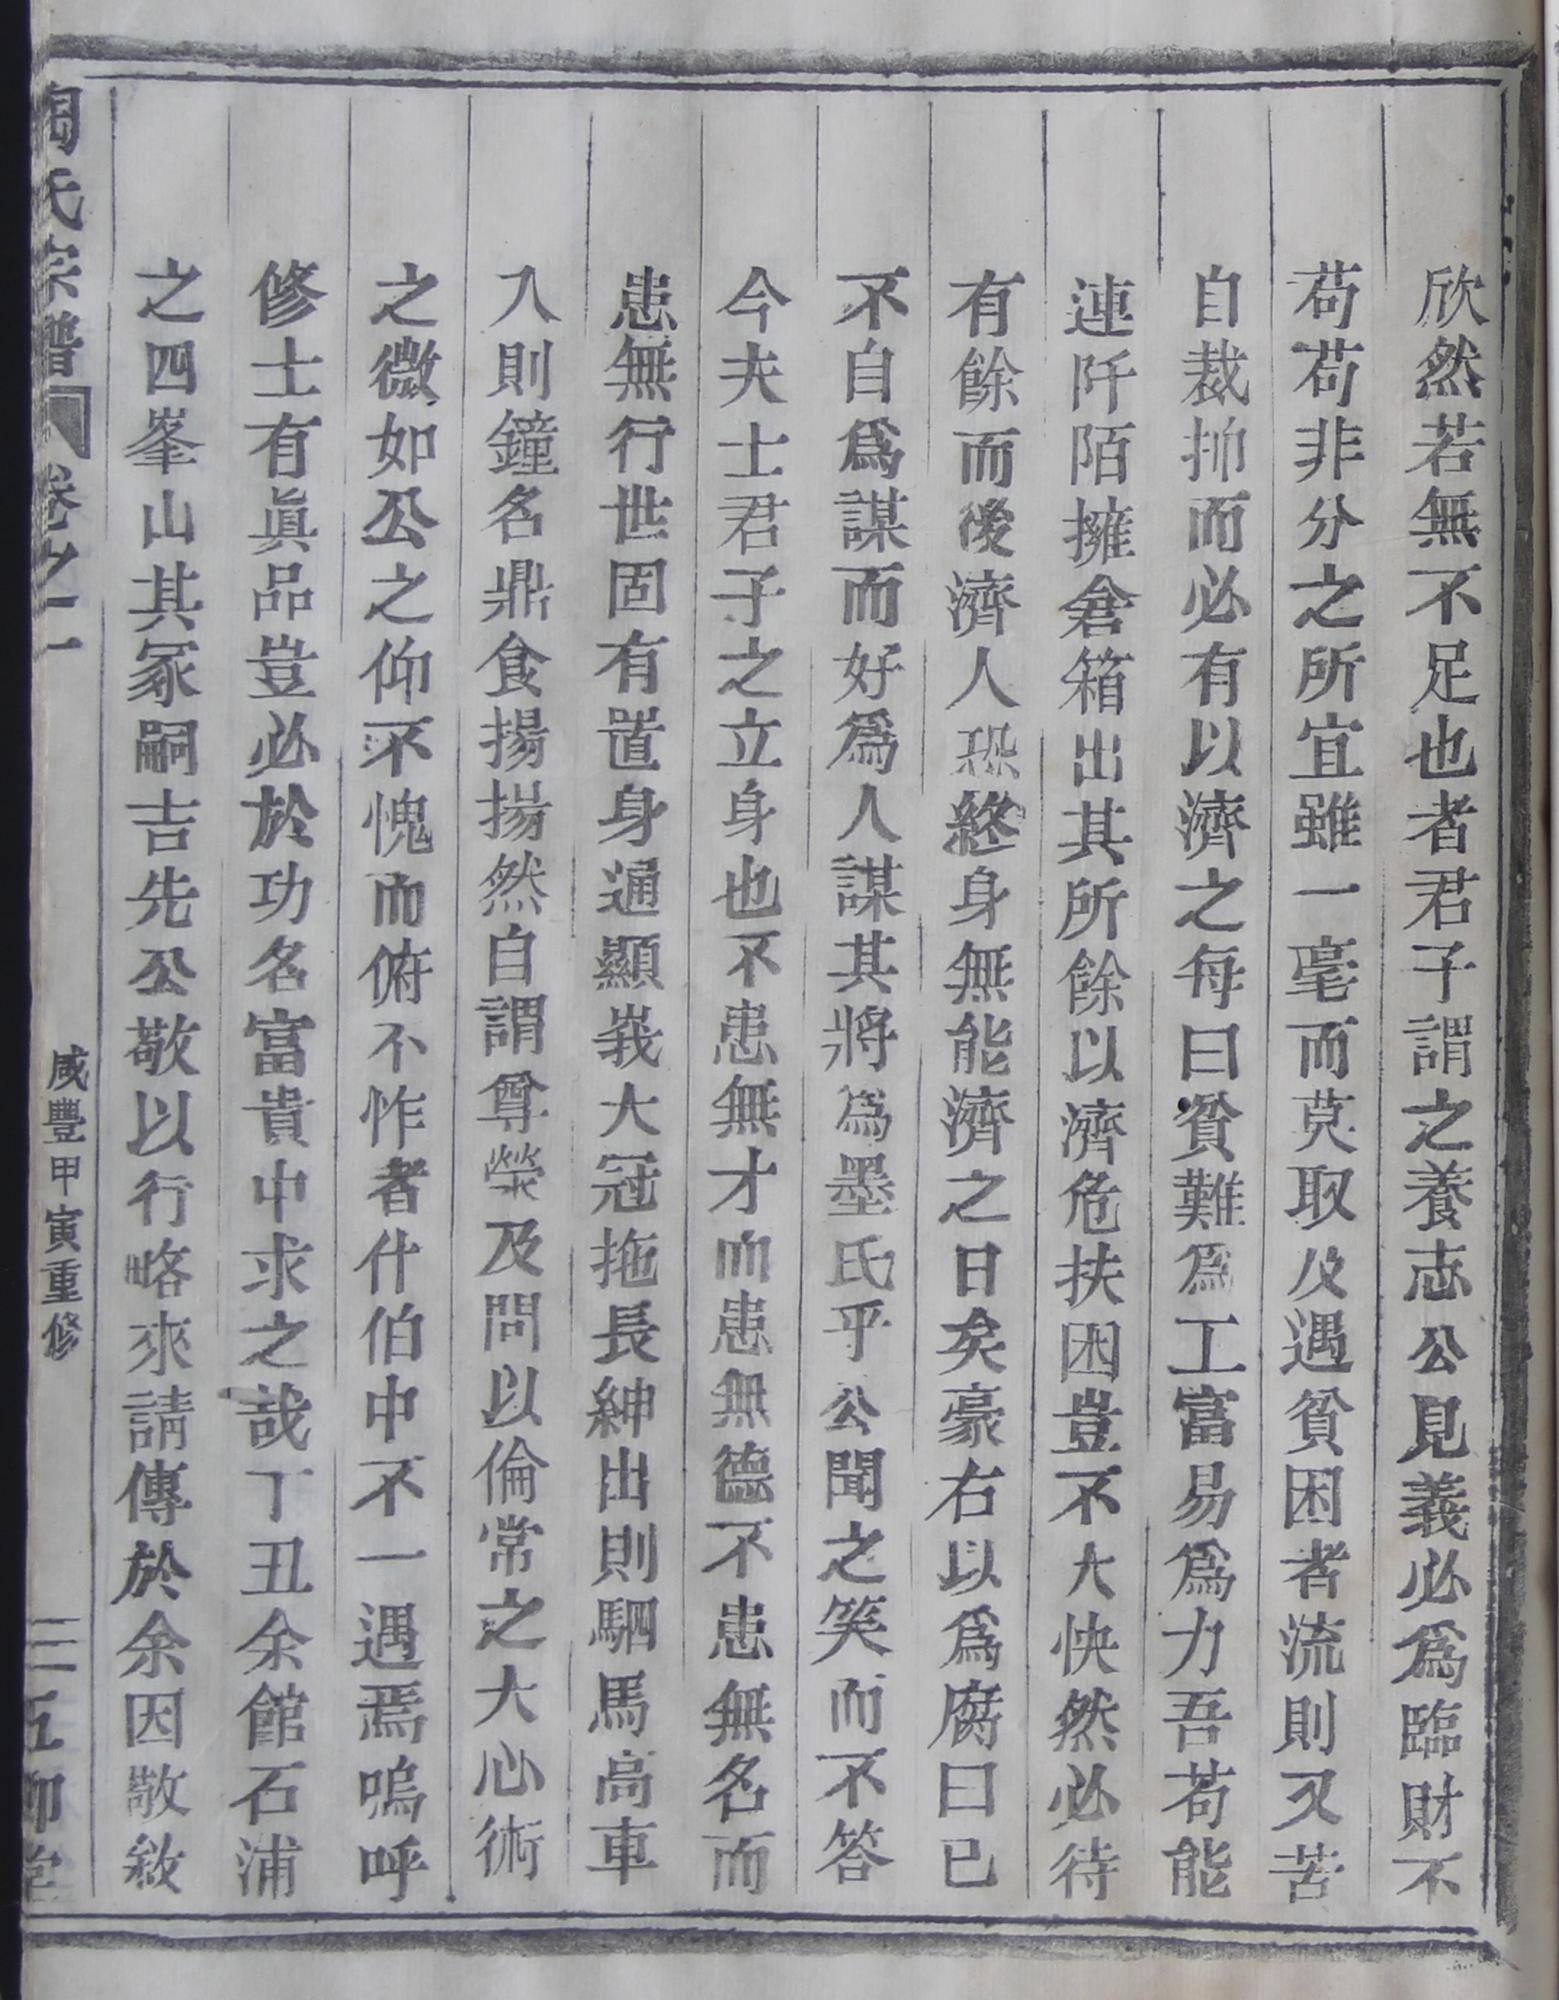 欣然若無不足也者君子謂之養志公見義必為臨財不
苟苟非分之所宜雖一毫而莫取及遇貧困者流則又苦
自裁抑而必有以濟之每曰貧難為工富易為力吾苟能
連阡陌擁倉箱出其所餘以濟危扶困豈不大快然必待
有餘而後濟人恐終身無能濟之日矣豪右以為腐曰已
不自為謀而好為人謀其將為墨氏乎公聞之笑而不答
今夫士君子之立身也不患無才而患無德不患無名而
患無行世固有置身通顯峩大冠拖長紳出則駟馬高車
入則鐘名鼎食揚揚然自謂尊榮及問以倫常之大心術
之微如公之仰不愧而俯不怍者什伯中不一遇焉嗚呼
修士有眞品豈必於功名富貴中求之哉丁丑余館石浦
之四峯山其冢嗣吉先公敬以行略來請傳於余因敬敘
陶氏宗譜 卷之一 咸豐甲寅重修 三 五柳堂